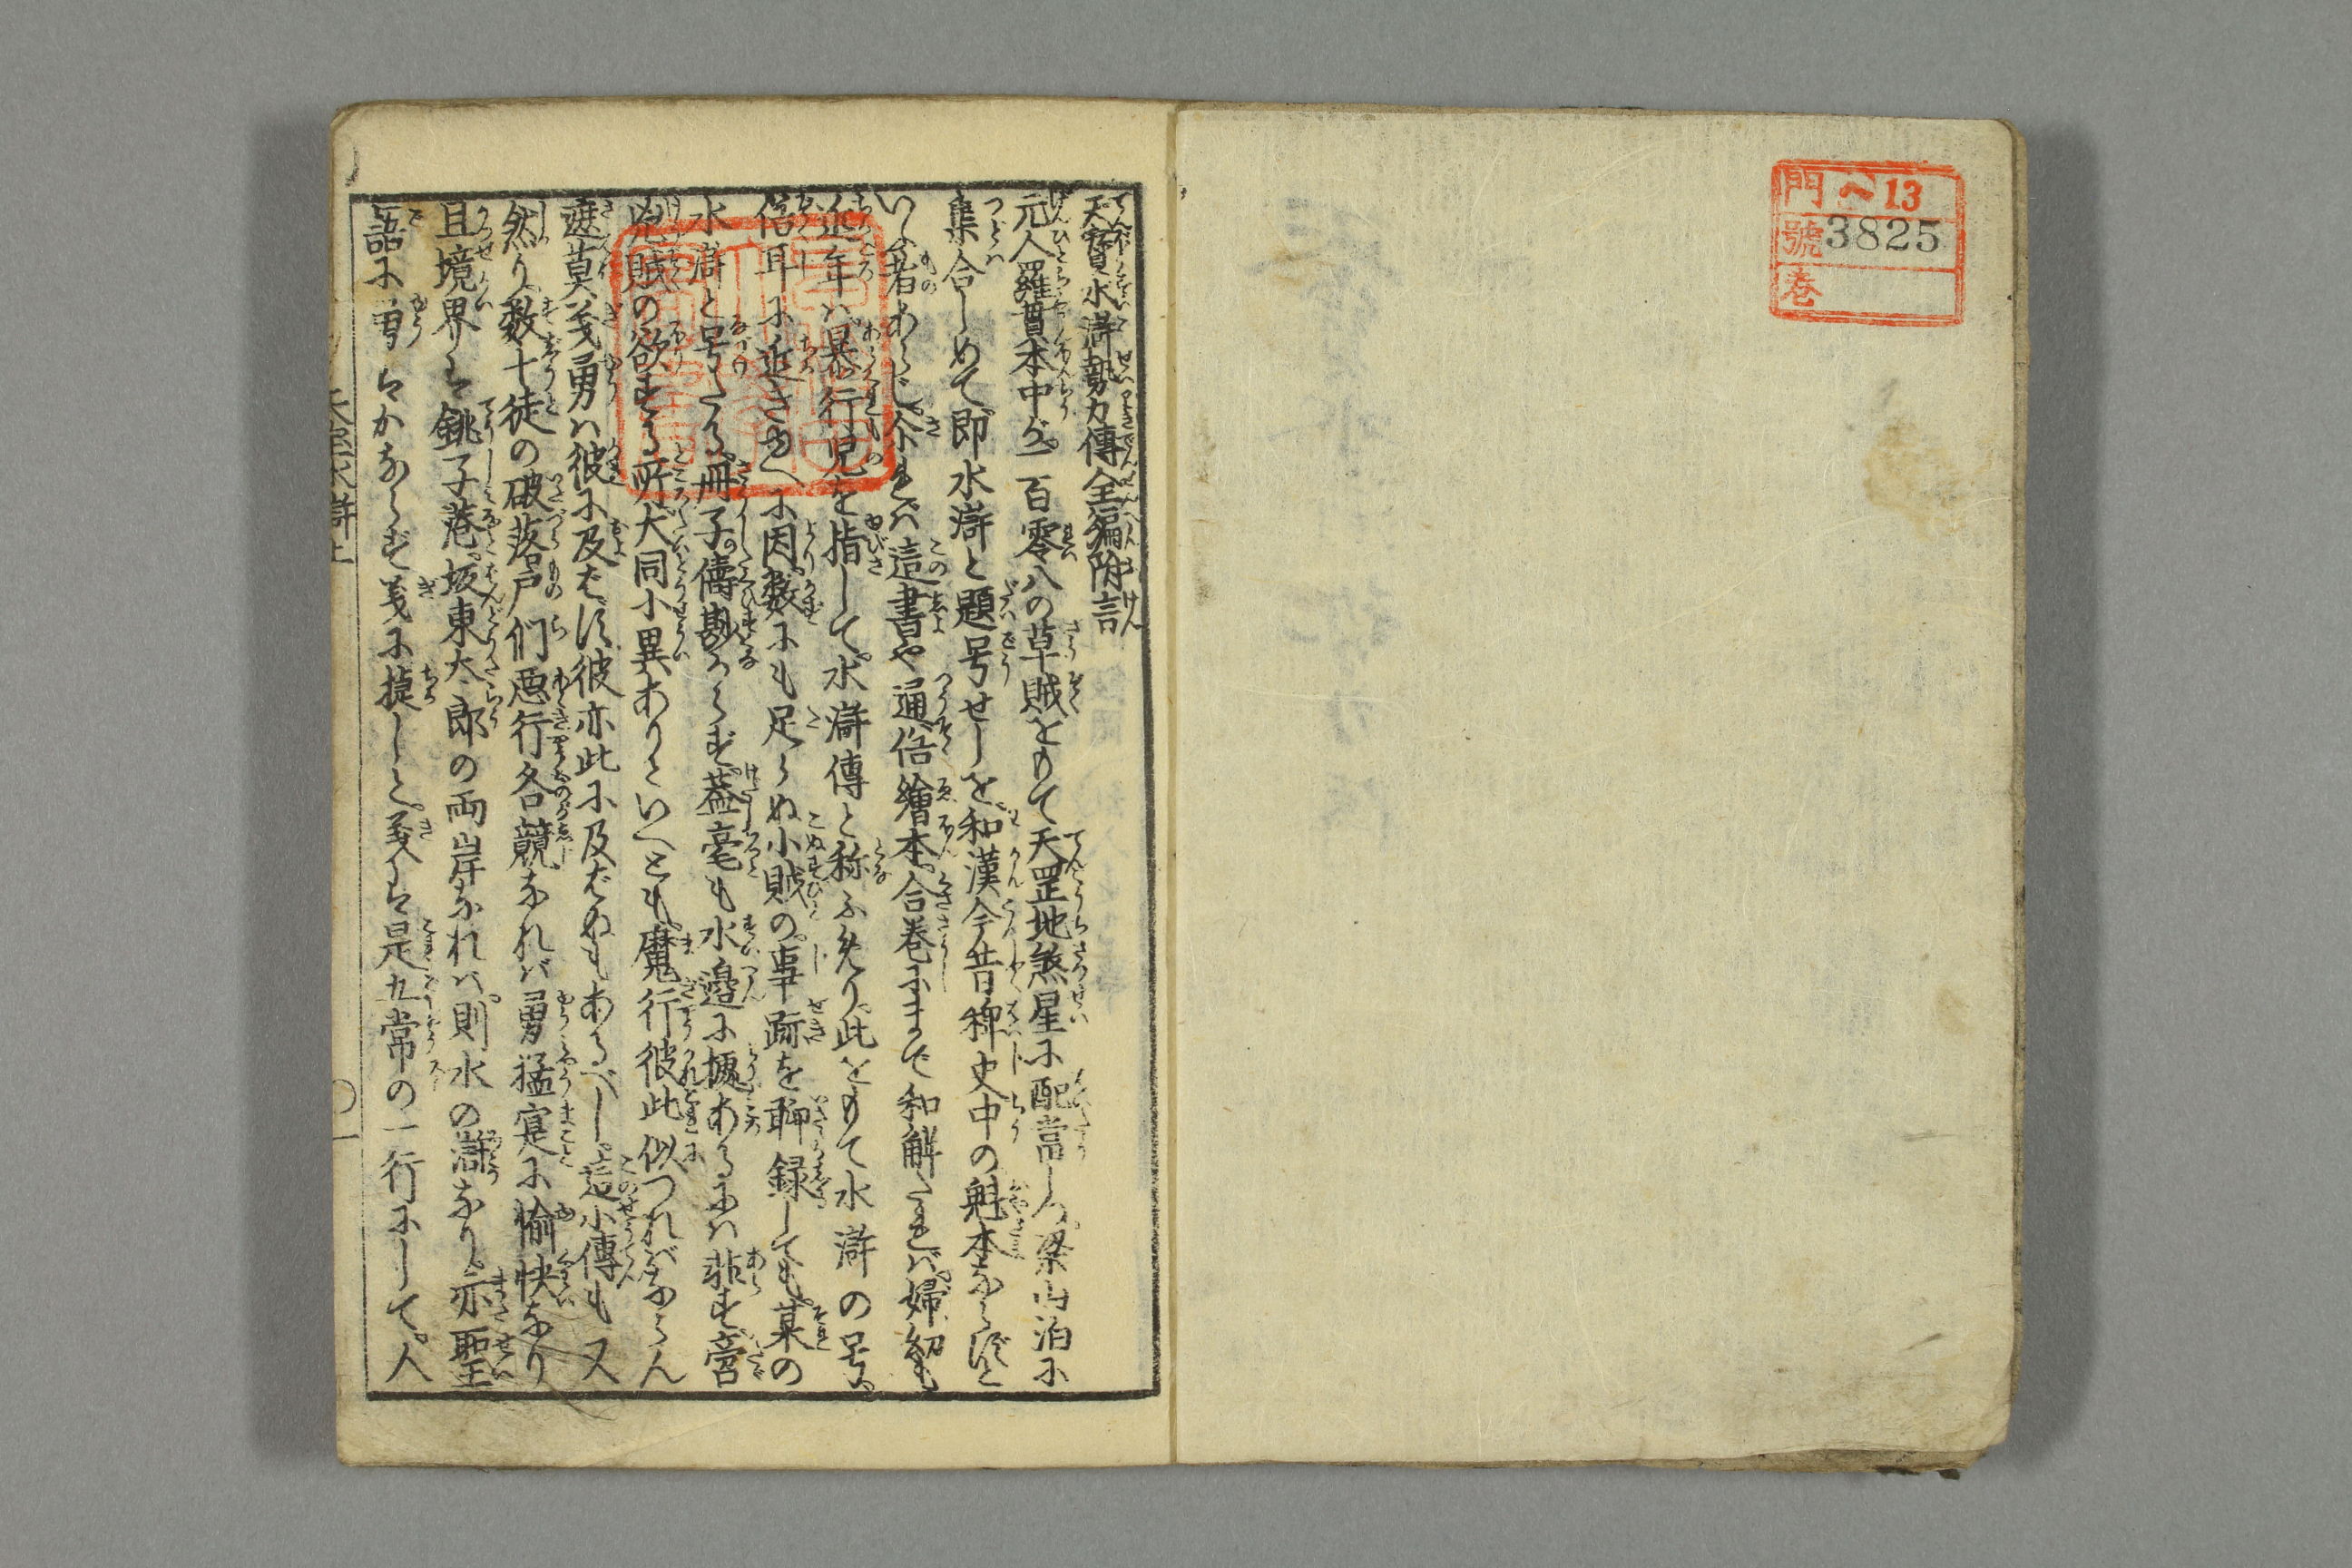 門 ヘ13
號 3825
巻
天寳水滸勢力傳全編附言
元人羅貫本中が一百零八の草賊をもて天罡地煞星に配當し梁山泊に
集合しめて即水滸と題号せしを和漢今昔稗史中の魁本ならずと
いふ者あらじ介れバ這書や通俗繪本合巻にまで和解たれバ婦幼も
近年ハ暴行児を指して水滸傳と称ふめり此をもて水滸の号
俗耳に近きゆへに因数にも足らぬ小賊の事跡を聊録しても某の
水滸と号たる冊子儔尠からず蓋毫も水邉に據あるにハ非ず啻
児賊の欲する所大同小異ありといへとも魔行彼此似つれバならん
遮莫義勇ハ彼に及ばず彼亦此に及ばぬもあるべし這小傳も又
然り数十徒の破落戸們悪行各競なれバ勇猛寔に愉快なり
且境界は銚子港坂東太郎の両岸なれハ則水の滸なり亦聖
語に勇はかならず義に據しと義は是五常の一行にして人
天保水滸上
〇一